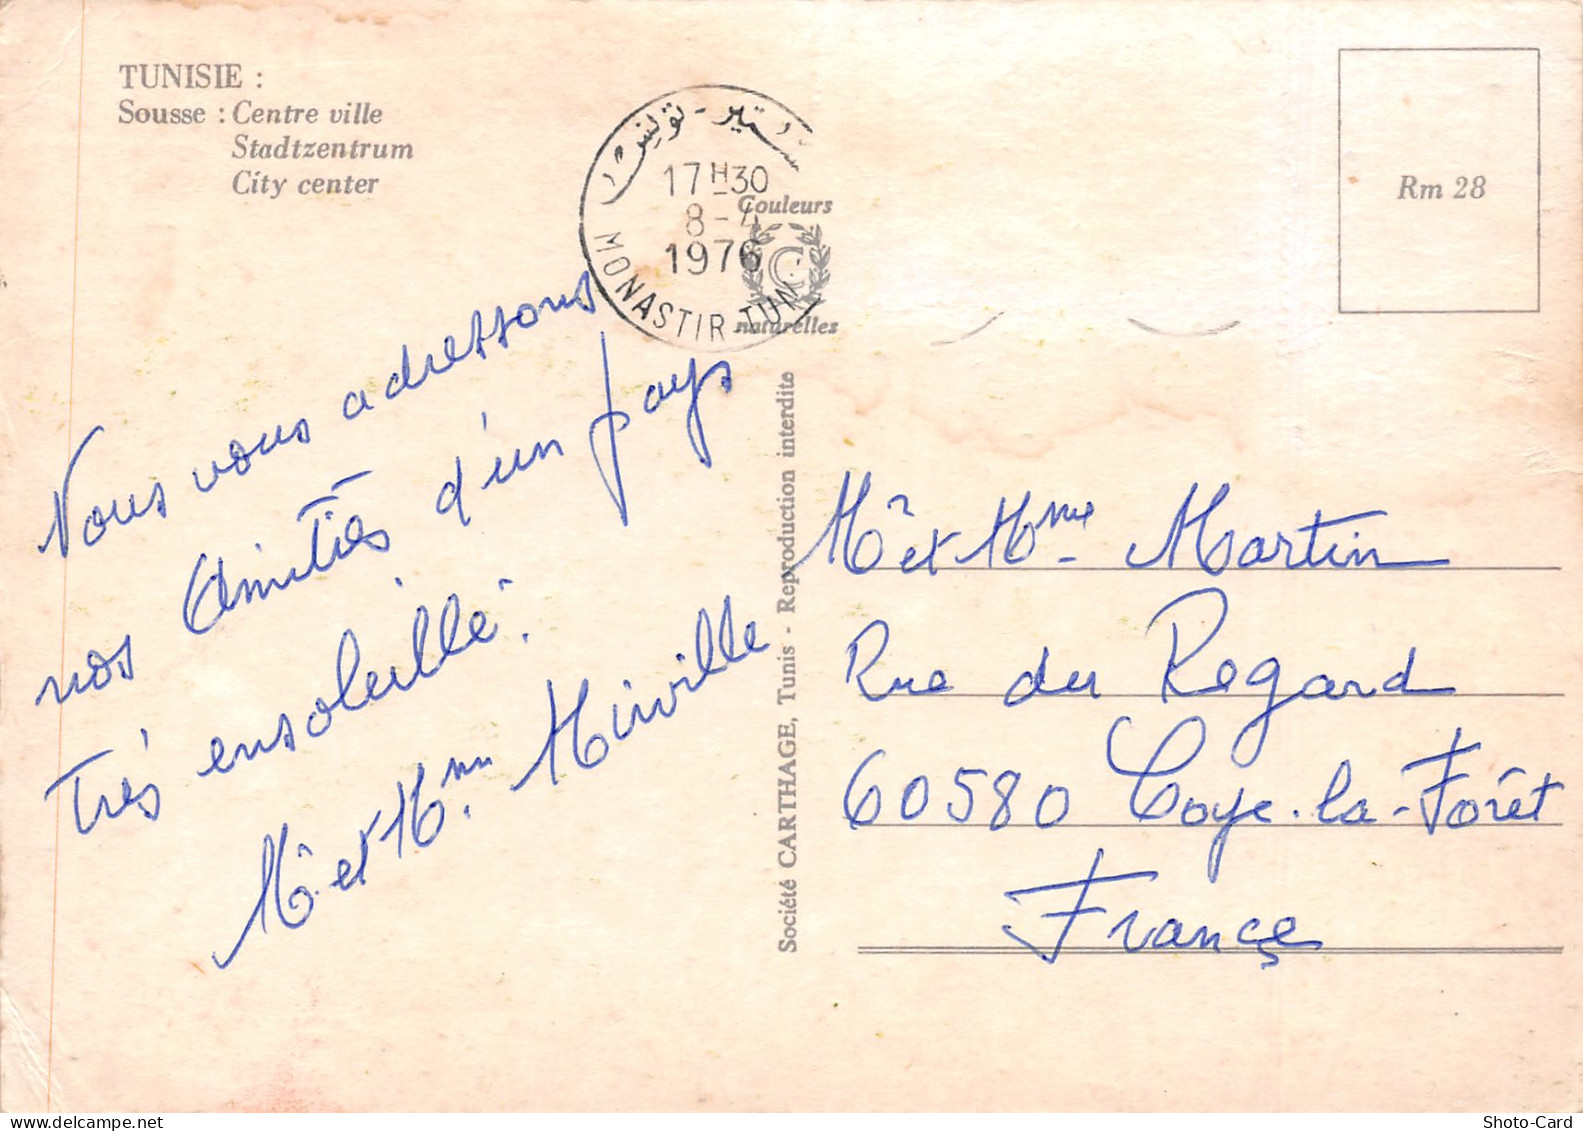 TUNISIE :
Sousse : Centre ville
Stadtzentrum
City center
تونس
17H30
8-4
1976
MONASTIR TUN
Couleurs
naturelles
Rm 28
Nous vous adressons
nos Amitiés d'un pays
très ensoleillé.
Mr et Mme Mirville
Société CARTHAGE, Tunis - Reproduction interdite
Mr et Mme Martin
Rue du Regard
60580 Coye-la-Forêt
France
Shoto-Card